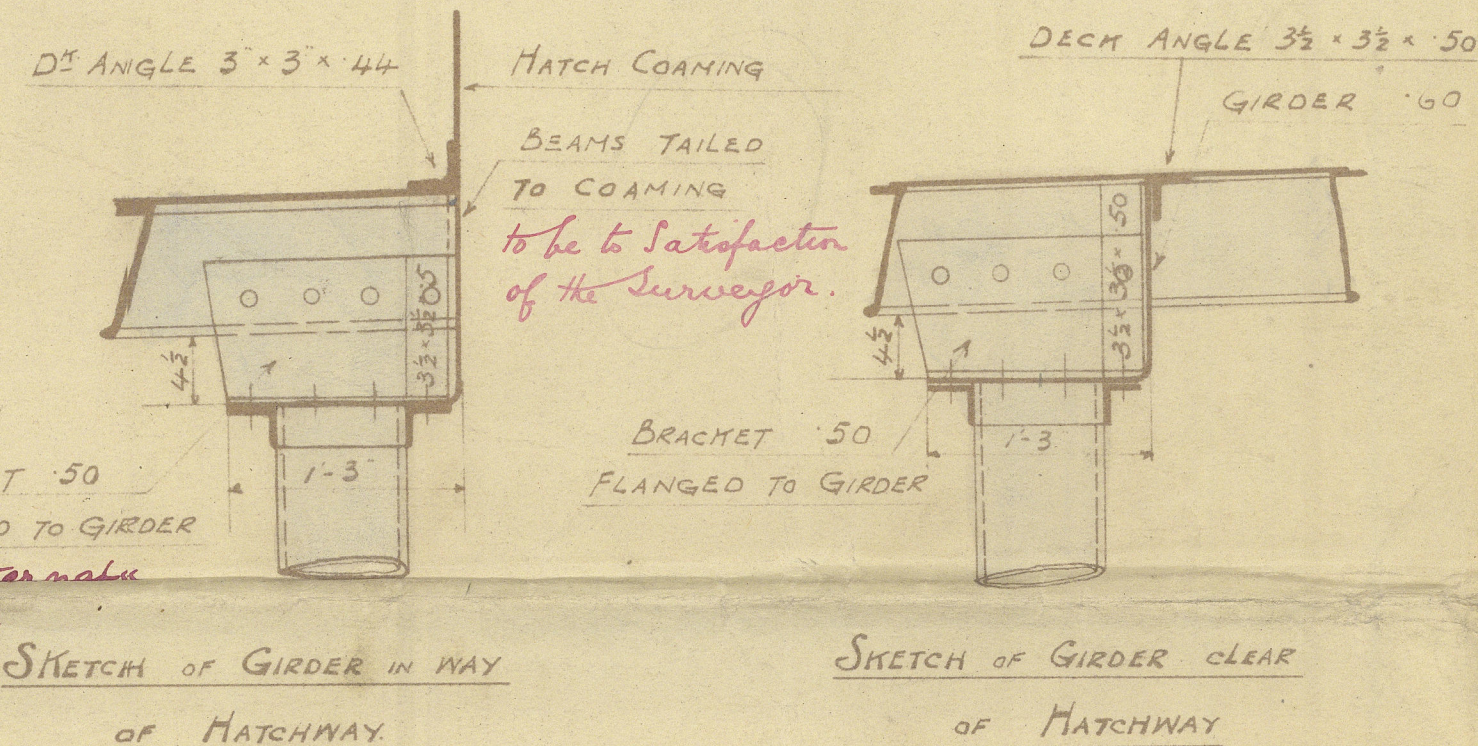 Dᴷ ANGLE 3" × 3" × .44
HATCH COAMING
BEAMS TAILED
TO COAMING
to be to Satisfaction
of the Surveyor.
4½
1'-3"
T .50
D TO GIRDER
SKETCH OF GIRDER IN WAY
OF HATCHWAY.
DECK ANGLE 3½ × 3½ × .50
GIRDER .60
4½
1'-3
BRACKET .50
FLANGED TO GIRDER
SKETCH OF GIRDER CLEAR
OF HATCHWAY